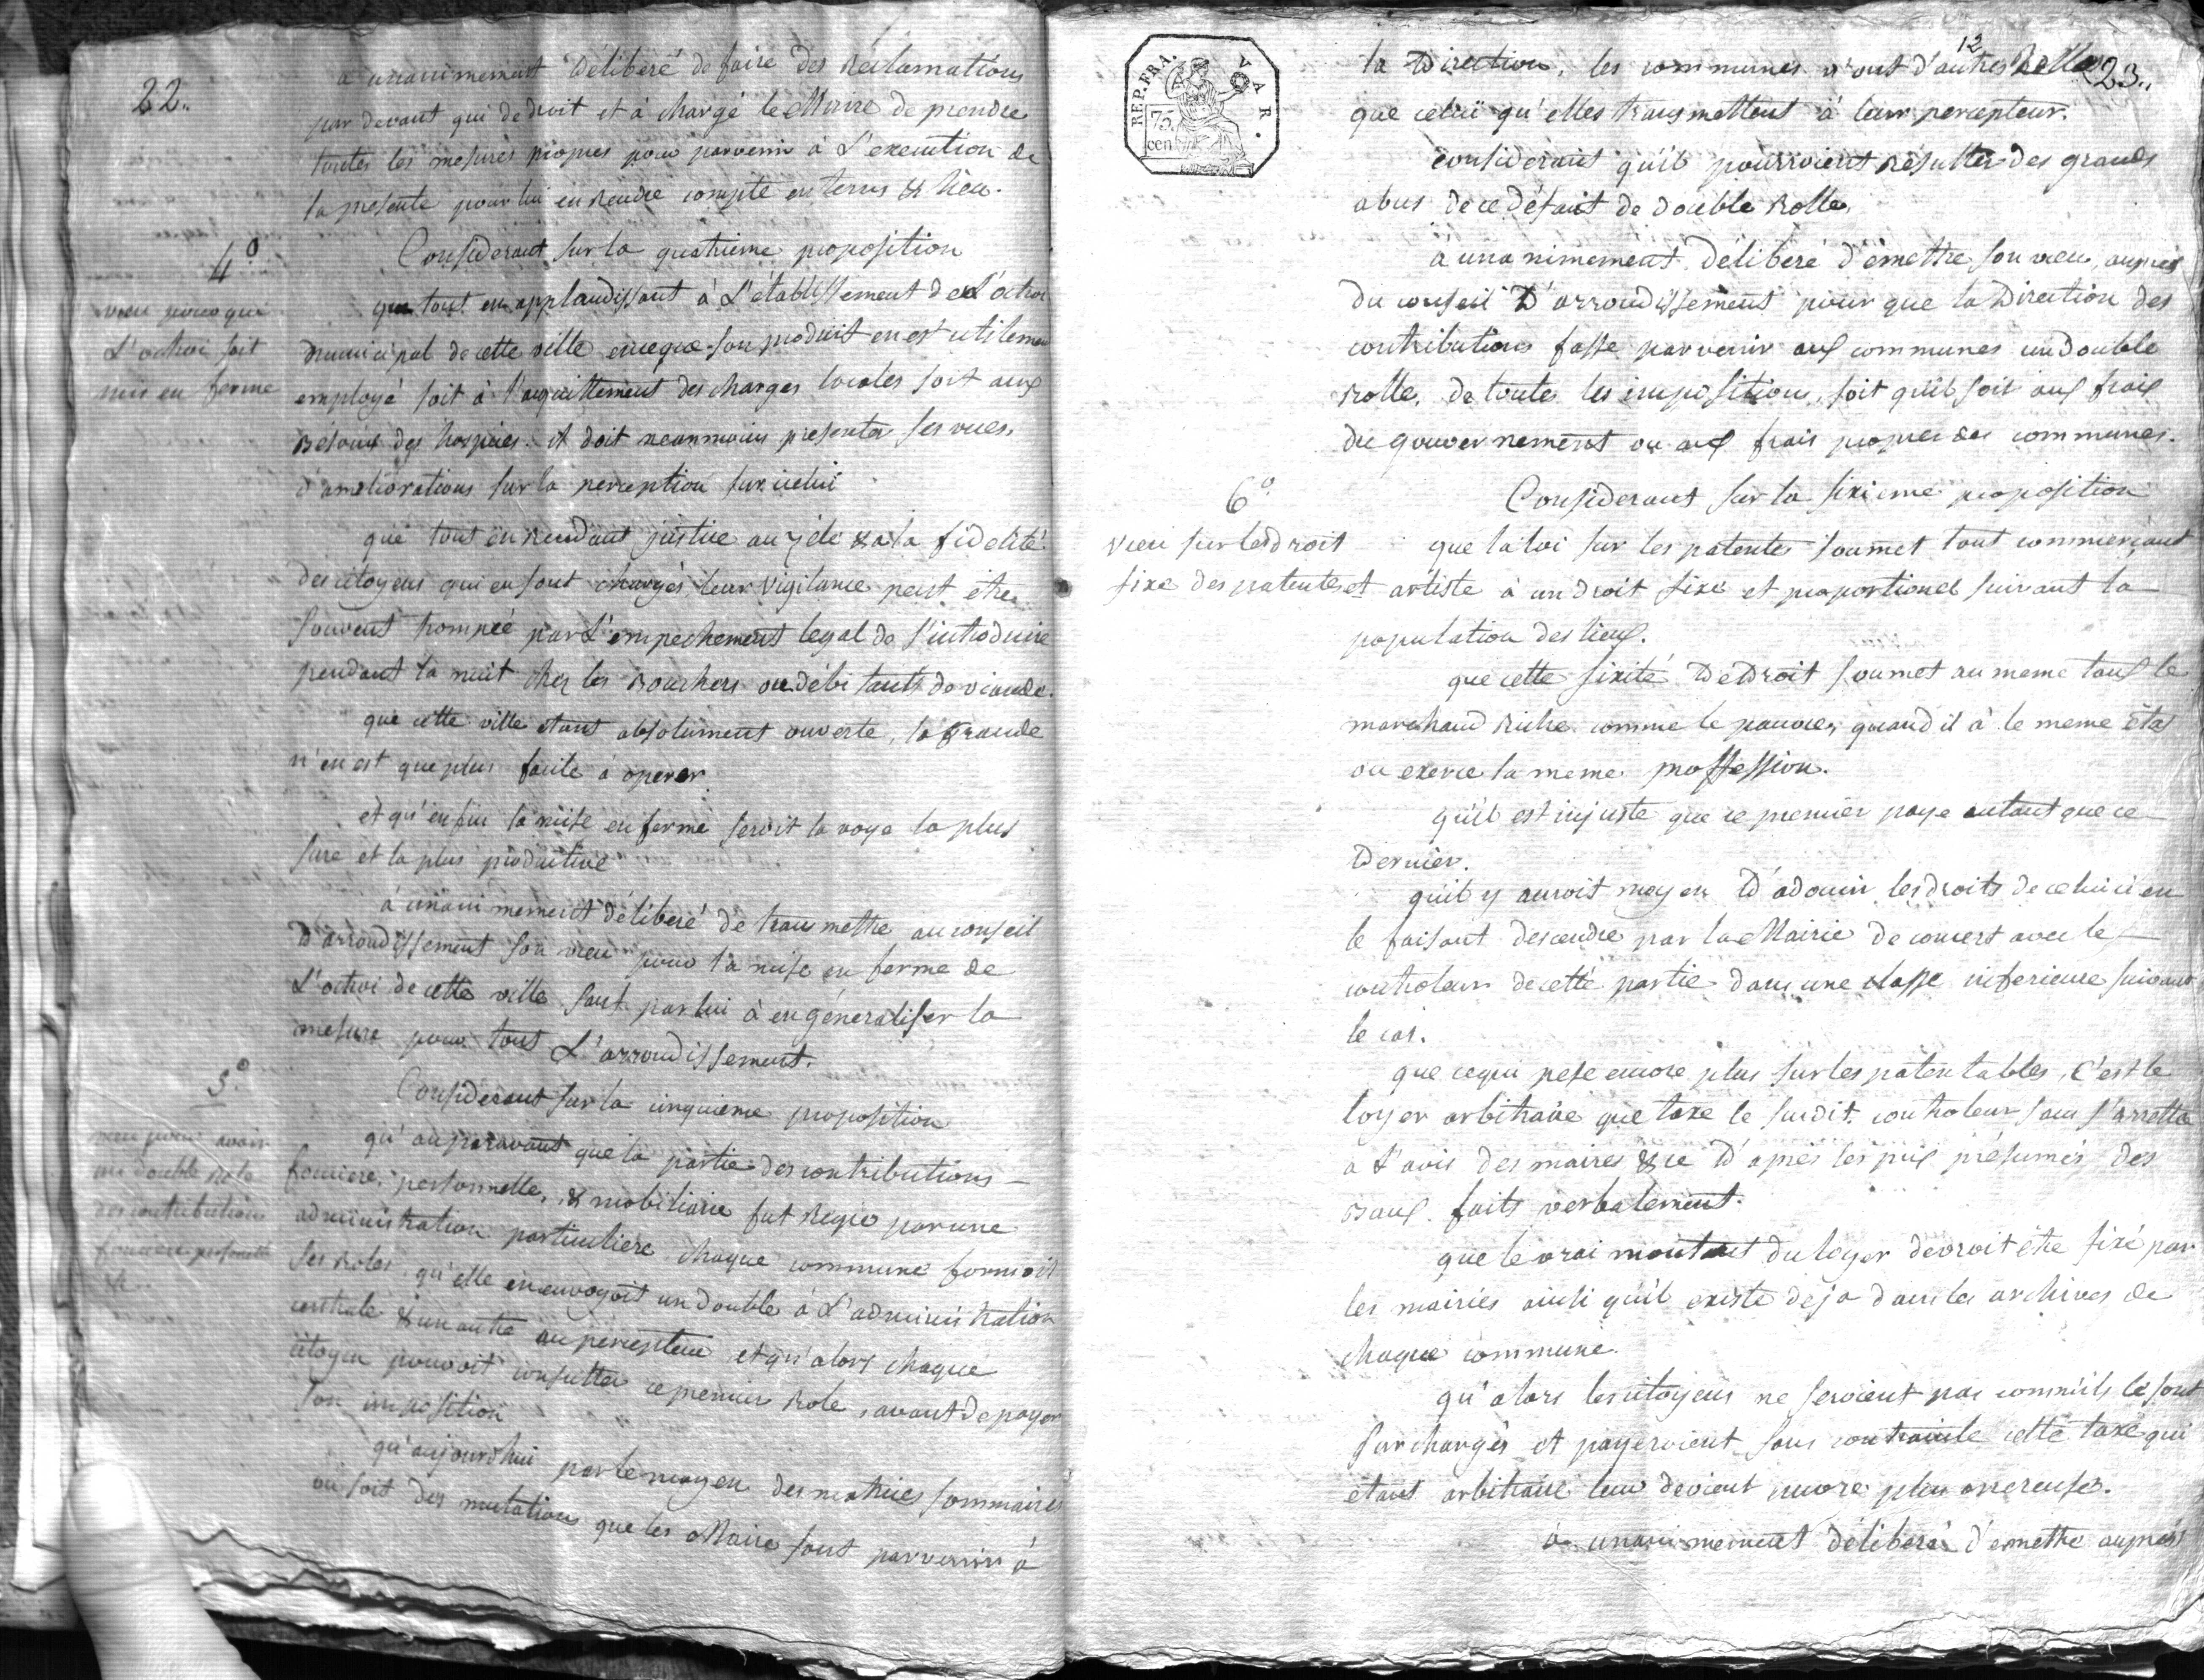 22.
a unanimement délibéré de faire des réclamations
par devant qui de droit et à chargé le Maire de prendre
toutes les mesures propres pour parvenir à l'execution de
la presente pour lui en rendre compte en tems & lieu.
4°
vœu pour que
l'octroi soit
mis en ferme
Considerant sur la quatrieme proposition
que tout en applaudissant à l'établissement de l'octroi
municipal de cette ville en ce que son produit en est utilement
employé soit à l'acquittement des charges locales soit aux
besoins des hospices. il doit neanmoins presenter ses vues,
d'ameliorations sur la perception sur icelui
que tout en rendant justice au zéle & a la fidelité
des citoyens qui en sont chargés, leur vigilance peut être
souvent trompée par l'empechement legal de s'introduire
pendant la nuit chez les bouchers ou débitants de viande.
que cette ville etant absolument ouverte, la fraude
n'en est que plus facile à operer.
et qu'enfin la mise en ferme seroit la voye la plus
sure et la plus productive
à unanimement délibéré de transmettre au conseil
d'arrondissement son vœu pour la mise en ferme de
l'octroi de cette ville sauf par lui à en généraliser la
mesure pour tout l'arrondissement.
5°
vœu pour avoir
un double role
des contributions
fonciere personnelle
&c.
Considerant sur la cinquieme proposition
qu'auparavant que la partie des contributions
fonciere, personnelle, & mobiliaire fut regie par une
administration particuliere chaque commune formoit
ses roles, qu'elle en envoyoit un double à l'administration
centrale & un autre au percepteur et qu'alors chaque
citoyen pouvoit consulter ce premier role, avant de payer
son imposition
qu'aujourd'hui par le moyen des matrices sommaires
ou soit des mutations que les Maire font parvenir à
REP. FRA.
VAR.
75.
cen.
12
23..
la Direction, les communes n'ont d'autres Rolles
que celui qu'elles transmettent à leur percepteur.
considerant qu'il pourroient résulter des grands
abus de ce défaut de double rolle,
à unanimement délibéré d'émettre son vœu, auprès
du conseil d'arrondissement pour que la Direction des
contributions fasse parvenir aux communes un double
rolle, de toute les impositions, soit qu'il soit aux fraix
du gouvernement ou aux frais propres des communes.
6°
vœu sur les droit
fixe des patentes
Considerant sur la sixieme proposition
que la loi sur les patentes soumet tout commerçant
et artiste à un droit fixe et proportionel suivant la
population des lieux.
que cette fixité de droit soumet au meme taux le
marchand riche comme le pauvre, quand il à le meme état
ou exerce la meme proffession.
qu'il est injuste que ce premier paye autant que ce
dernier.
qu'il y auroit moyen d'adoucir les droits de celui ci en
le faisant descendre par la Mairie de concert avec le
controleur de cette partie dans une classe inferieure suivant
le cas.
que ce qui pese encore plus sur les patentables, c'est le
loyer arbitraire que taxe le susdit controleur sans s'arretter
a l'avis des maires & ce d'après les prix présumés des
baux faits verbalement.
que le vrai montant du loyer devroit être fixé par
les mairies ainsi qu'il existe deja dans les archives de
chaque commune.
qu'alors les citoyens ne seroient pas comm'ils le sont
surchargés et payeroient sans contrainte cette taxe qui
etant arbitraire leur devient encore plus onereuse.
à unanimement délibéré d'emettre auprès